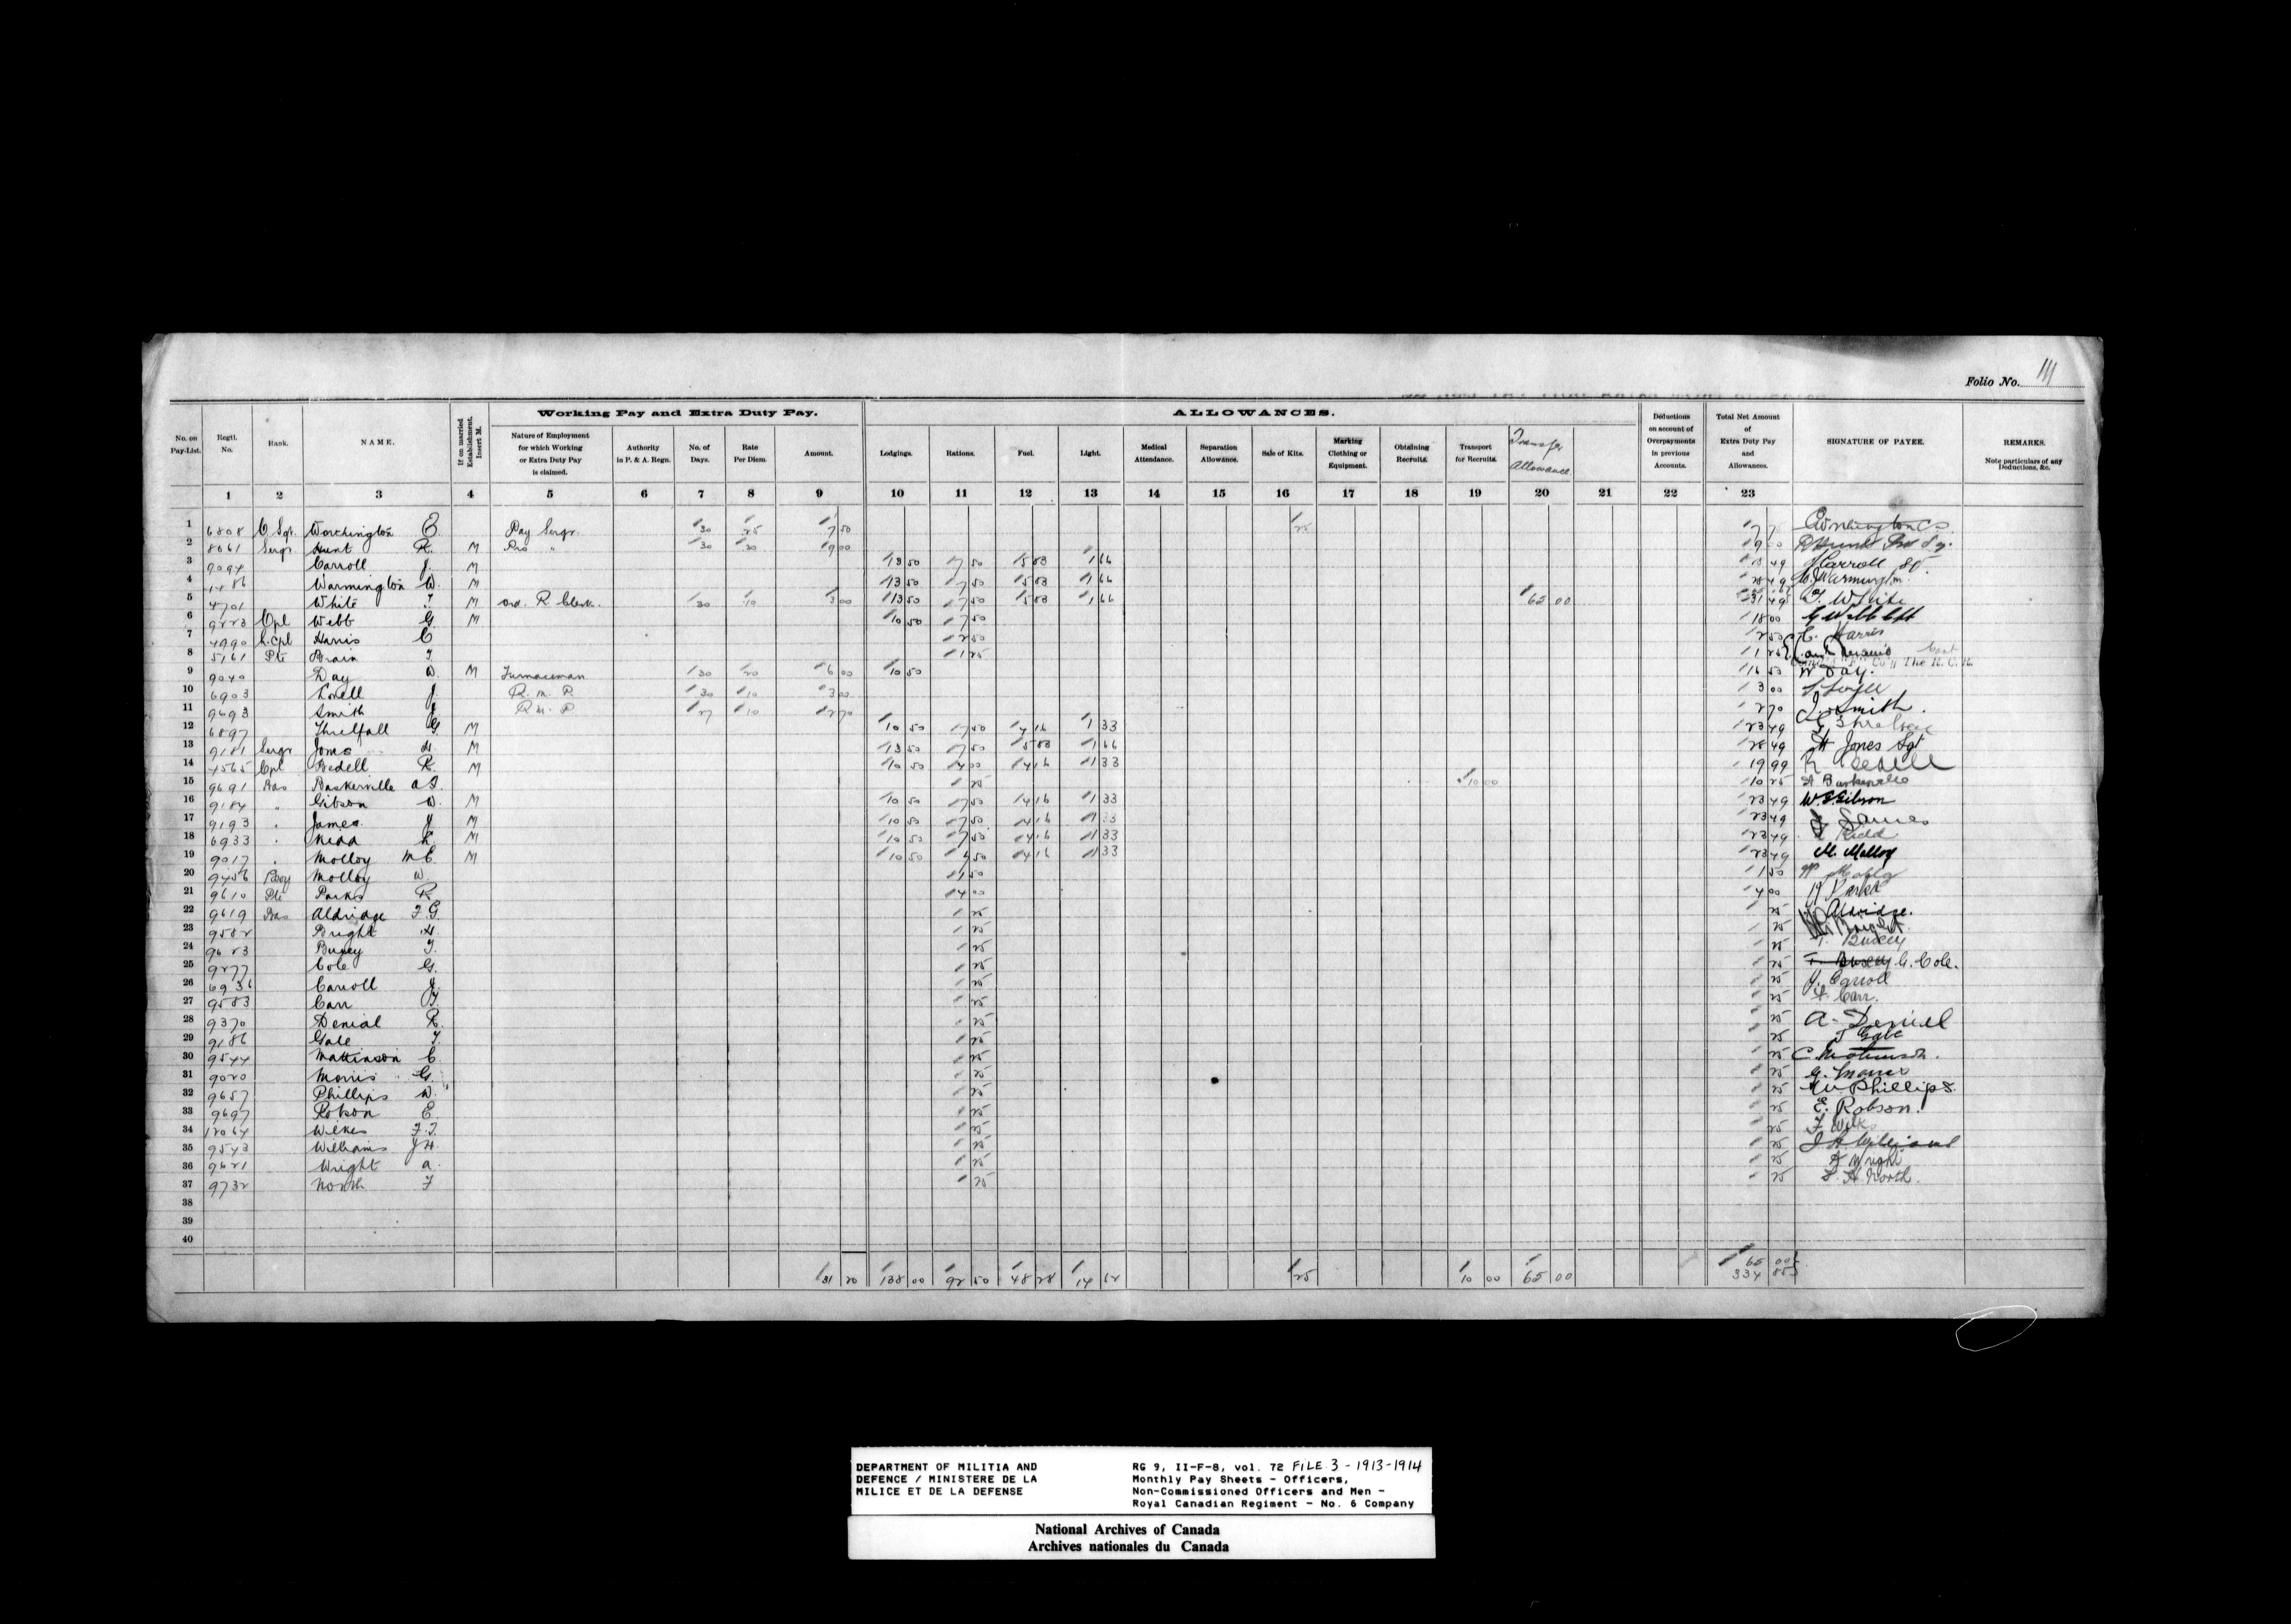 Folio No. 111
Working Pay and Extra Duty Pay. ALLOWANCES.
No. on Pay-List. Regtl. No. Rank. NAME. If on married Establishment. Insert M. Nature of Employment for which Working or Extra Duty Pay is claimed. Authority in P. & A. Regn. No. of Days. Rate Per Diem. Amount. Lodgings. Rations. Fuel. Light. Medical Attendance. Separation Allowance. Sale of Kits. Marking Clothing or Equipment. Obtaining Recruits. Transport for Recruits. Transfer Allowance. Deductions on account of Overpayments in previous Accounts. Total Net Amount of Extra Duty Pay and Allowances. SIGNATURE OF PAYEE. REMARKS. Note particulars of any Deductions, &c.
1 2 3 4 5 6 7 8 9 10 11 12 13 14 15 16 17 18 19 20 21 22 23
1 6808 Worthington Pay Sergr. 30 25 7 50 25 7 75
2 8061 Sergr Hunt R. M Pro " 30 30 9 00 9 00
3 9094 Carroll J. M 13 50 7 50 5 83 1 66 28 49
4 1486 Warmington W. M 13 50 7 50 5 83 1 66 28 49
5 4701 White T. M Ord. R. Clerk. 30 10 3 00 13 50 7 50 5 83 1 66 65 00 31 49 T. White
6 9223 Cpl Webb G. M 10 50 7 50 18 00
7 4990 L.Cpl Harris C 2 50 2 50 C. Harris
8 5161 Pte Brain T. 1 25 1 25 The R.C.R.
9 9040 Day W. M Furnaceman 30 20 6 00 10 50 16 50 W Day.
10 6903 Lovell J. R. M. P. 30 10 3 00 3 00
11 9693 Smith J R. M. P. 27 10 2 70 2 70 J. Smith.
12 6897 Threlfall G. M 10 50 7 50 4 16 1 33 23 49
13 9181 Sergr Jones H. M 13 50 7 50 5 83 1 66 28 49 H Jones Sgt
14 4565 Cpl Bedell R. M 10 50 4 00 4 16 1 33 19 99 R Bedell
15 9691 Bas Baskerville A.T. 25 10 00 10 25 A Baskerville
16 9184 " Gibson W. M 10 50 7 50 4 16 1 33 23 49 W. E. Gibson
17 9193 " James J M 10 50 7 50 4 16 1 33 23 49 J James
18 6933 " Kidd L M 10 50 7 50 4 16 1 33 23 49 L Kidd
19 9017 " Molloy M C M 10 50 7 50 4 16 1 33 23 49 M. Molloy
20 9456 Boy Molloy W. 1 50 1 50
21 9610 Pte Parks R 4 00 4 00
22 9619 Bas Aldridge F.G. 25 25 Aldridge.
23 9582 Bright H. 25 25 Bright
24 9623 Busey T. 25 25 T. Busey
25 9277 Cole G. 25 25 G. Cole.
26 6936 Carroll J. 25 25 J. Carroll
27 9583 Carr F. 25 25 F. Carr.
28 9370 Denial R. 25 25
29 9186 Gale T. 25 25 T Gale
30 9544 Mattinson C. 25 25
31 9020 Morris G. 25 25
32 9657 Phillips W. 25 25 W Phillips.
33 9697 Robson E 25 25 E. Robson.
34 12064 Wilkes F.T. 25 25 F Wilkes
35 9543 Williams J H. 25 25 J H Williams
36 9621 Wright A. 25 25 A Wright
37 9732 North F 25 25 F. H North.
38
39
40
31 20 138 00 92 50 48 28 14 62 25 10 00 65 00 65 00
334 85
DEPARTMENT OF MILITIA AND DEFENCE / MINISTERE DE LA MILICE ET DE LA DEFENSE
RG 9, II-F-8, vol. 72 FILE 3 - 1913-1914
Monthly Pay Sheets - Officers,
Non-Commissioned Officers and Men -
Royal Canadian Regiment - No. 6 Company
National Archives of Canada
Archives nationales du Canada